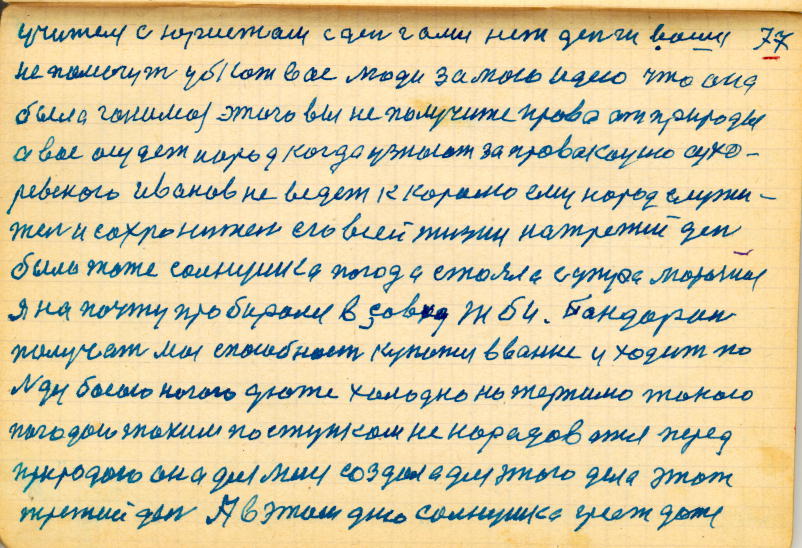 учителя с юристам с ден гами нет денги ваши 77
не помогут убют вас люди за мою идею что она
была гонимая этого вы не получите права от природы
а вас осудет народ когда узнают за правакацию сухо-
ревского Иванов не ведет к хорошо ему народ служи-
тел и сохронител его всей жизни на третий ден
было тоже солнушка погода стояла с утра морозная
Я на почту пробирался в завод ЖБИ. Бондарин
получат мая способност купатся в ванне и ходит по
лду босою ногою дюже холодно но терпимо такою
погодою таким поступком не нарадоватся перед
природою она для меня создала для этого дела этот
третий ден А в этом дню солнушка греет даже